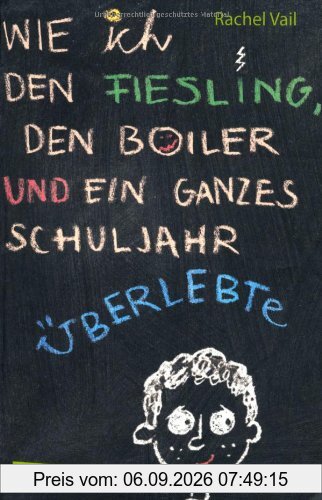 Urheberrechtlich geschütztes Material
Rachel Vail
WIE ich
DEN FIESLING,
DEN BOILER
UND EIN GANZES
SCHULJAHR
ÜBERLEBTE
Preis vom: 06.09.2026 07:49:15